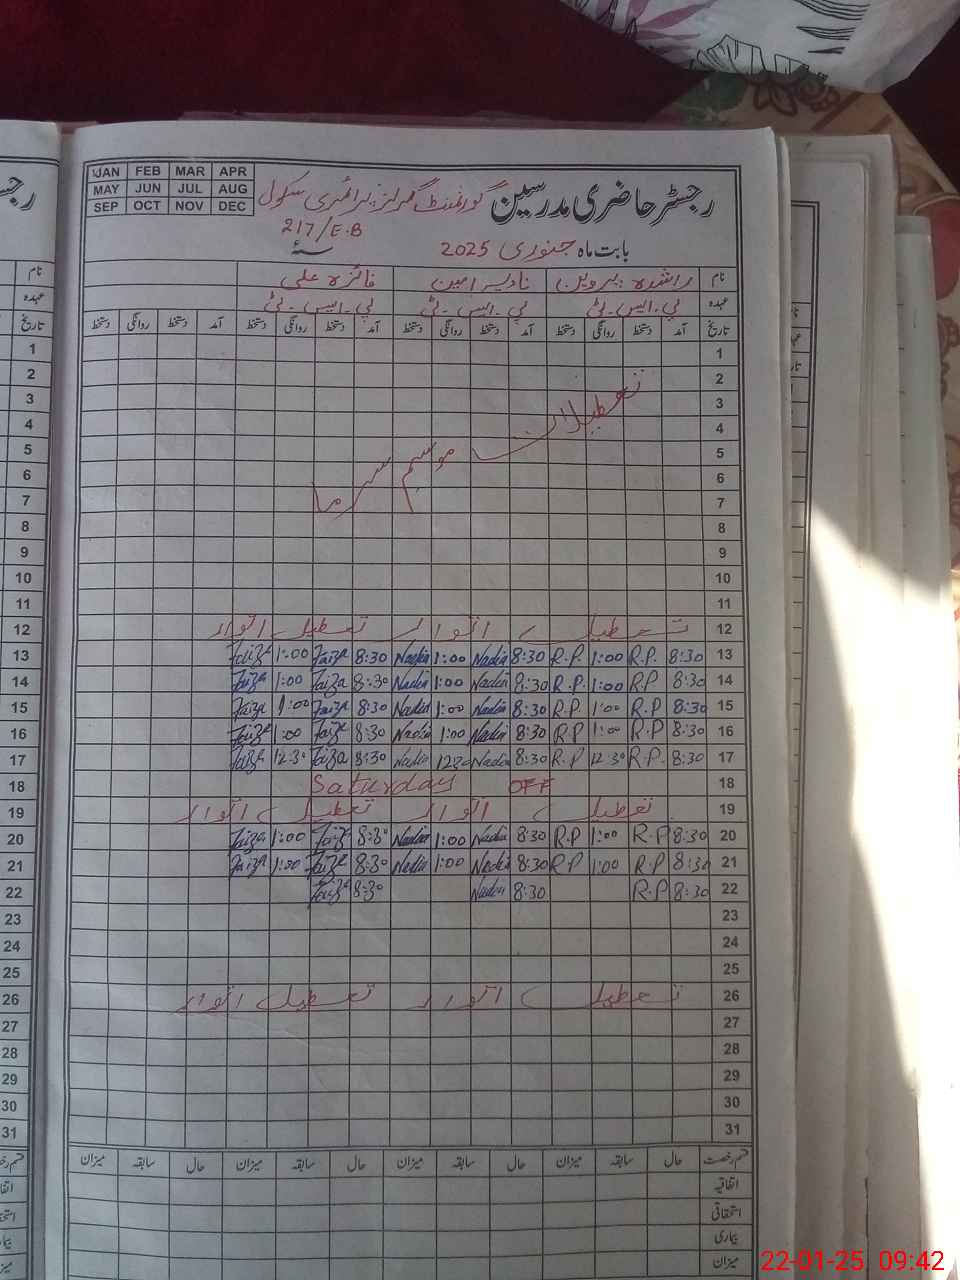 JAN FEB MAR APR
MAY JUN JUL AUG
SEP OCT NOV DEC
رجسٹر حاضری مدرسین گورنمنٹ گرلز پرائمری سکول
217/E.B
بابت ماہ جنوری 2025 سنہء
نام راشدہ پروین نادیہ امین فائزہ علی
عہدہ پی۔ایس۔ٹی پی۔ایس۔ٹی پی۔ایس۔ٹی
تاریخ آمد دستخط روانگی دستخط آمد دستخط روانگی دستخط آمد دستخط روانگی دستخط آمد دستخط روانگی دستخط
1
2
3
4
5
6
7
تعطیلات موسم سرما
8
9
10
11
12 تعطیل اتوار تعطیل اتوار
13 8:30 R.P. 1:00 R.P. 8:30 Nadia 1:00 Nadia 8:30 Faiza 1:00 Faiza
14 8:30 R.P 1:00 R.P. 8:30 Nadia 1:00 Nadia 8:30 Faiza 1:00 Faiza
15 8:30 R.P 1:00 R.P 8:30 Nadia 1:00 Nadia 8:30 Faiza 1:00 Faiza
16 8:30 R.P 1:00 R.P 8:30 Nadia 1:00 Nadia 8:30 Faiza 1:00 Faiza
17 8:30 R.P. 12:30 R.P 8:30 Nadia 12:30 Nadia 8:30 Faiza 12:30 Faiza
18 Saturday OFF
19 تعطیل اتوار تعطیل اتوار
20 8:30 R.P 1:00 R.P 8:30 Nadia 1:00 Nadia 8:30 Faiza 1:00 Faiza
21 8:30 R.P 1:00 R.P 8:30 Nadia 1:00 Nadia 8:30 Faiza 1:00 Faiza
22 8:30 R.P 8:30 Nadia 8:30 Faiza
23
24
25
26 تعطیل اتوار تعطیل اتوار
27
28
29
30
31
قسم رخصت حال سابقہ میزان حال سابقہ میزان حال سابقہ میزان حال سابقہ میزان
اتفاقیہ
استحقاقی
بیماری
میزان
22-01-25, 09:42